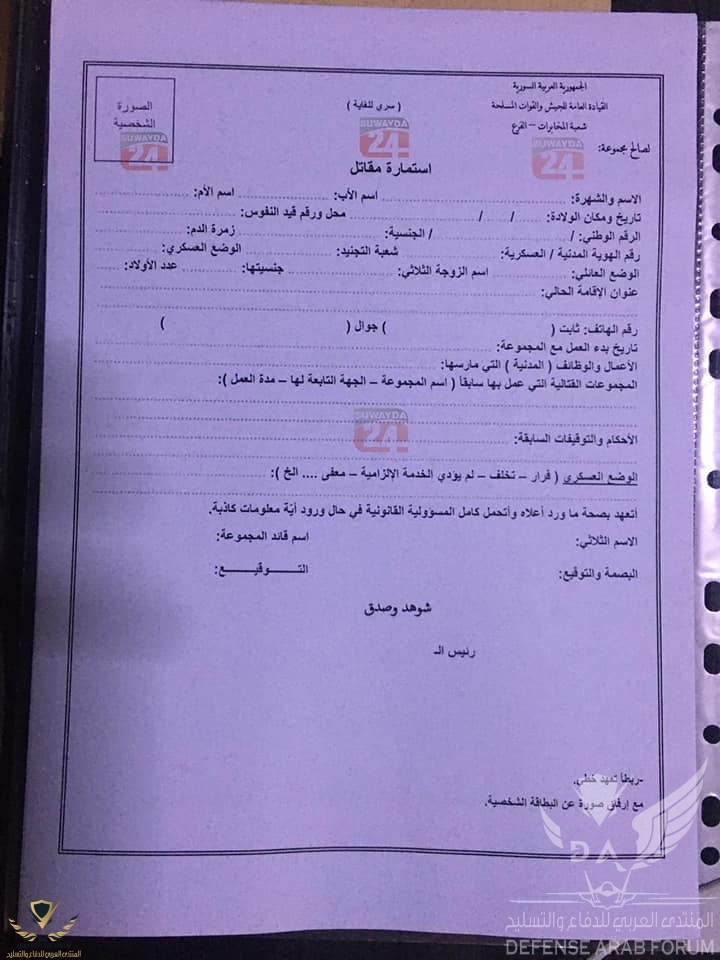 الجمهورية العربية السورية
القيادة العامة للجيش والقوات المسلحة
شعبة المخابرات – الفرع
لصالح مجموعة:
( سري للغاية )
الصورة
الشخصية
SUWAYDA
24
SUWAYDA
24
SUWAYDA
24
استمارة مقاتل
الاسم والشهرة: اسم الأب: اسم الأم:
تاريخ ومكان الولادة: / / محل ورقم قيد النفوس:
الرقم الوطني: / / الجنسية: زمرة الدم:
رقم الهوية المدنية / العسكرية: شعبة التجنيد: الوضع العسكري:
الوضع العائلي: اسم الزوجة الثلاثي: جنسيتها: عدد الأولاد:
عنوان الإقامة الحالي:
رقم الهاتف: ثابت ( ) جوال ( )
تاريخ بدء العمل مع المجموعة:
الأعمال والوظائف ( المدنية ) التي مارسها:
المجموعات القتالية التي عمل بها سابقاً ( اسم المجموعة – الجهة التابعة لها – مدة العمل ):
SUWAYDA
24
الأحكام والتوقيفات السابقة:
الوضع العسكري ( فرار – تخلف – لم يؤدي الخدمة الإلزامية – معفى .... الخ ):
أتعهد بصحة ما ورد أعلاه وأتحمل كامل المسؤولية القانونية في حال ورود أيّة معلومات كاذبة.
الاسم الثلاثي: اسم قائد المجموعة:
البصمة والتوقيع: التـــــوقيـــــع:
شوهد وصدق
رئيس الـ
-ربطاً تعهد خطي.
مع إرفاق صورة عن البطاقة الشخصية.
DA
المنتدى العربي للدفاع والتسليح
DEFENSE ARAB FORUM
المنتدى العربي للدفاع والتسليح